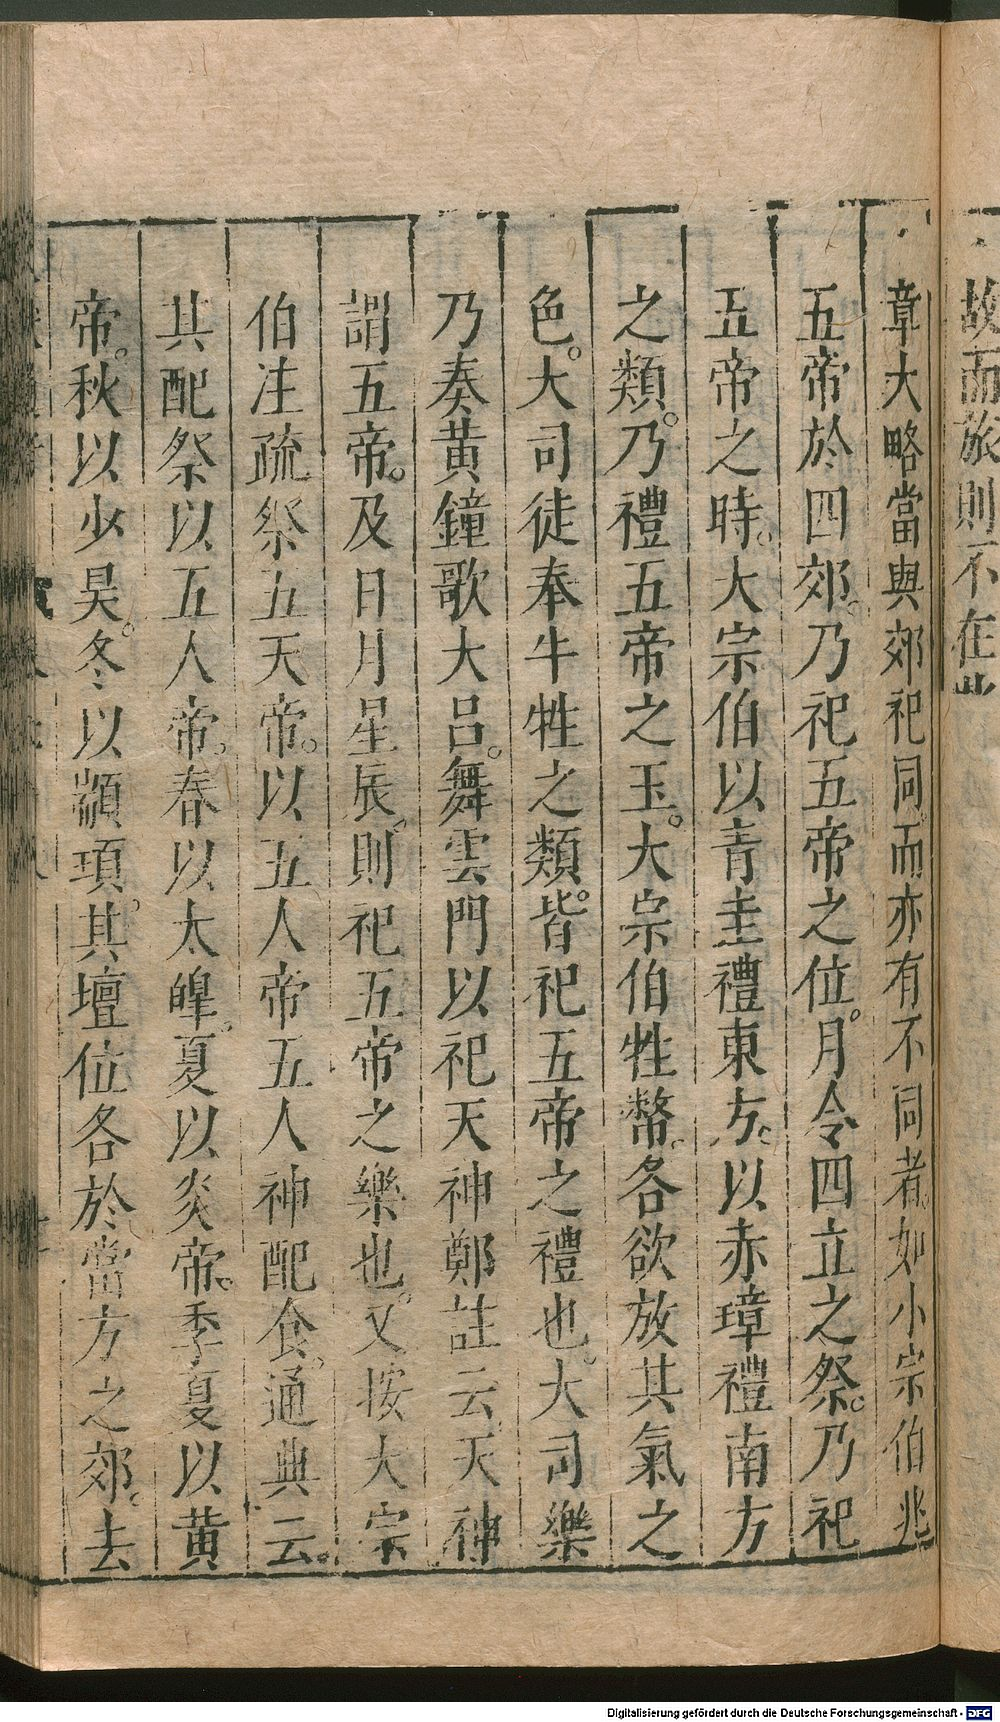 故而旅則不在此
章大略當與郊祀同而亦有不同者如小宗伯兆
五帝於四郊。乃祀五帝之位。月令四立之祭。乃祀
五帝之時。大宗伯以青圭禮東方。以赤璋禮南方
之類。乃禮五帝之玉。大宗伯牲幣。各欲放其氣之
色。大司徒奉牛牲之類。皆祀五帝之禮也。大司樂
乃奏黃鐘歌大呂。舞雲門以祀天神鄭註云天神
謂五帝。及日月星辰。則祀五帝之樂也。又按大宗
伯注疏祭五天帝。以五人帝五人神配食。通典云。
其配祭以五人帝。春以太皥。夏以炎帝。季夏以黃
帝。秋以少昊。冬以顓頊。其壇位各於當方之郊。去
Digitalisierung gefördert durch die Deutsche Forschungsgemeinschaft - DFG